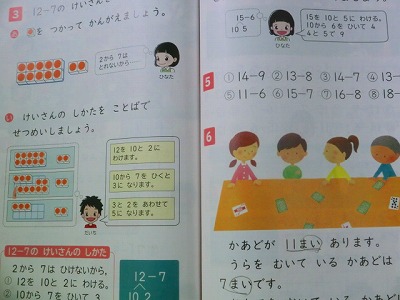 3 12-7の けいさんの
あ を つかって かんがえましょう。
2から 7は
とれないから…
ひなた
い けいさんの しかたを ことばで
せつめいしましょう。
12を 10と 2に
わけます。
10から 7を ひくと
3に なります。
3と 2を あわせて
5に なります。
だいち
12-7の けいさんの しかた
2から 7は ひけないから、
① 12を 10と 2に わける。
② 10から 7を ひいて 3
12-7
10 2
15-6
10 5
15を 10と 5に わける。
10から 6を ひいて 4
4と 5で 9
ひなた
5 ① 14-9 ② 13-8 ③ 14-7 ④ 13-
⑤ 11-6 ⑥ 15-7 ⑦ 16-8 ⑧ 18-
6
かあどが 11まい あります。
うらを むいて いる かあどは
7まいです。